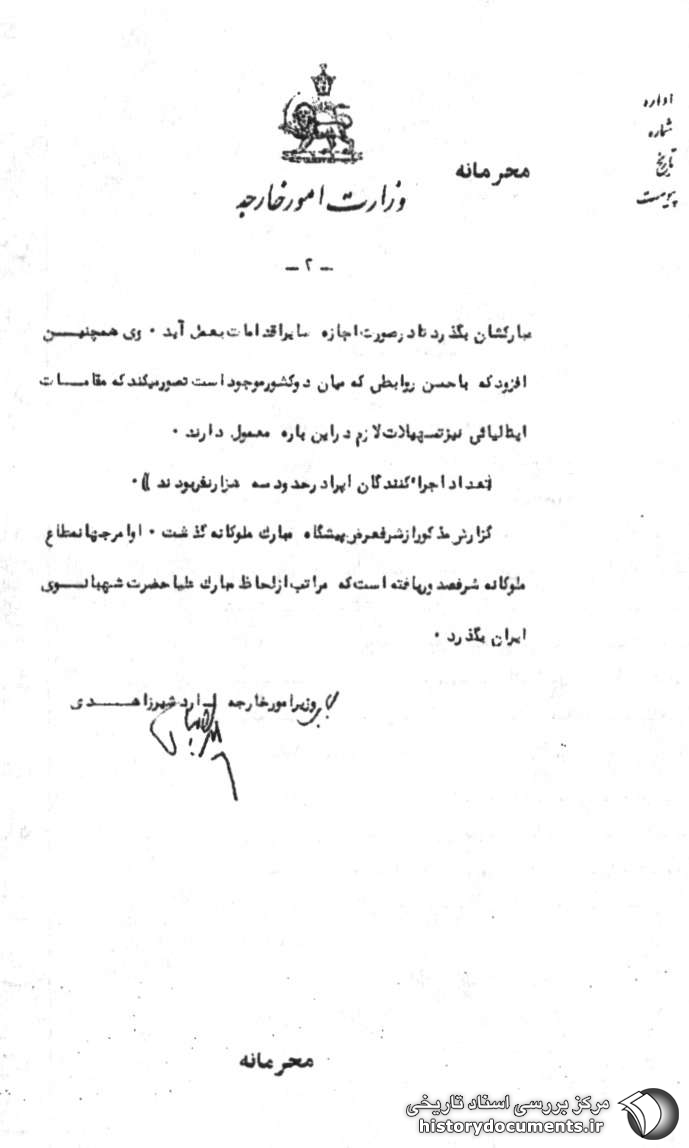 اداره
شماره
تاریخ
پیوست
محرمانه
وزارت امور خارجه
- ۲ -
مبارکشان بگذرد تا در صورت اجازه سایر اقدامات بعمل آید . وی همچنیــن
افزود که با حسن روابطی که میان دو کشور موجود است تصور میکند که مقامــات
ایتالیائی نیز تسهیلات لازم در این باره معمول دارند .
(تعداد اجراءکنندگان اپرا در حدود سه هزار نفر بودند ) .
گزارش مذکور از شرفعرض پیشگاه مبارک ملوکانه گذشت . اوامر جهانمطاع
ملوکانه شرفصدور یافته است که مراتب از لحاظ مبارک علیاحضرت شهبانــوی
ایران بگذرد .
وزیر امور خارجه ــ اردشیر زاهــدی
محرمانه
مرکز بررسی اسناد تاریخی
historydocuments.ir